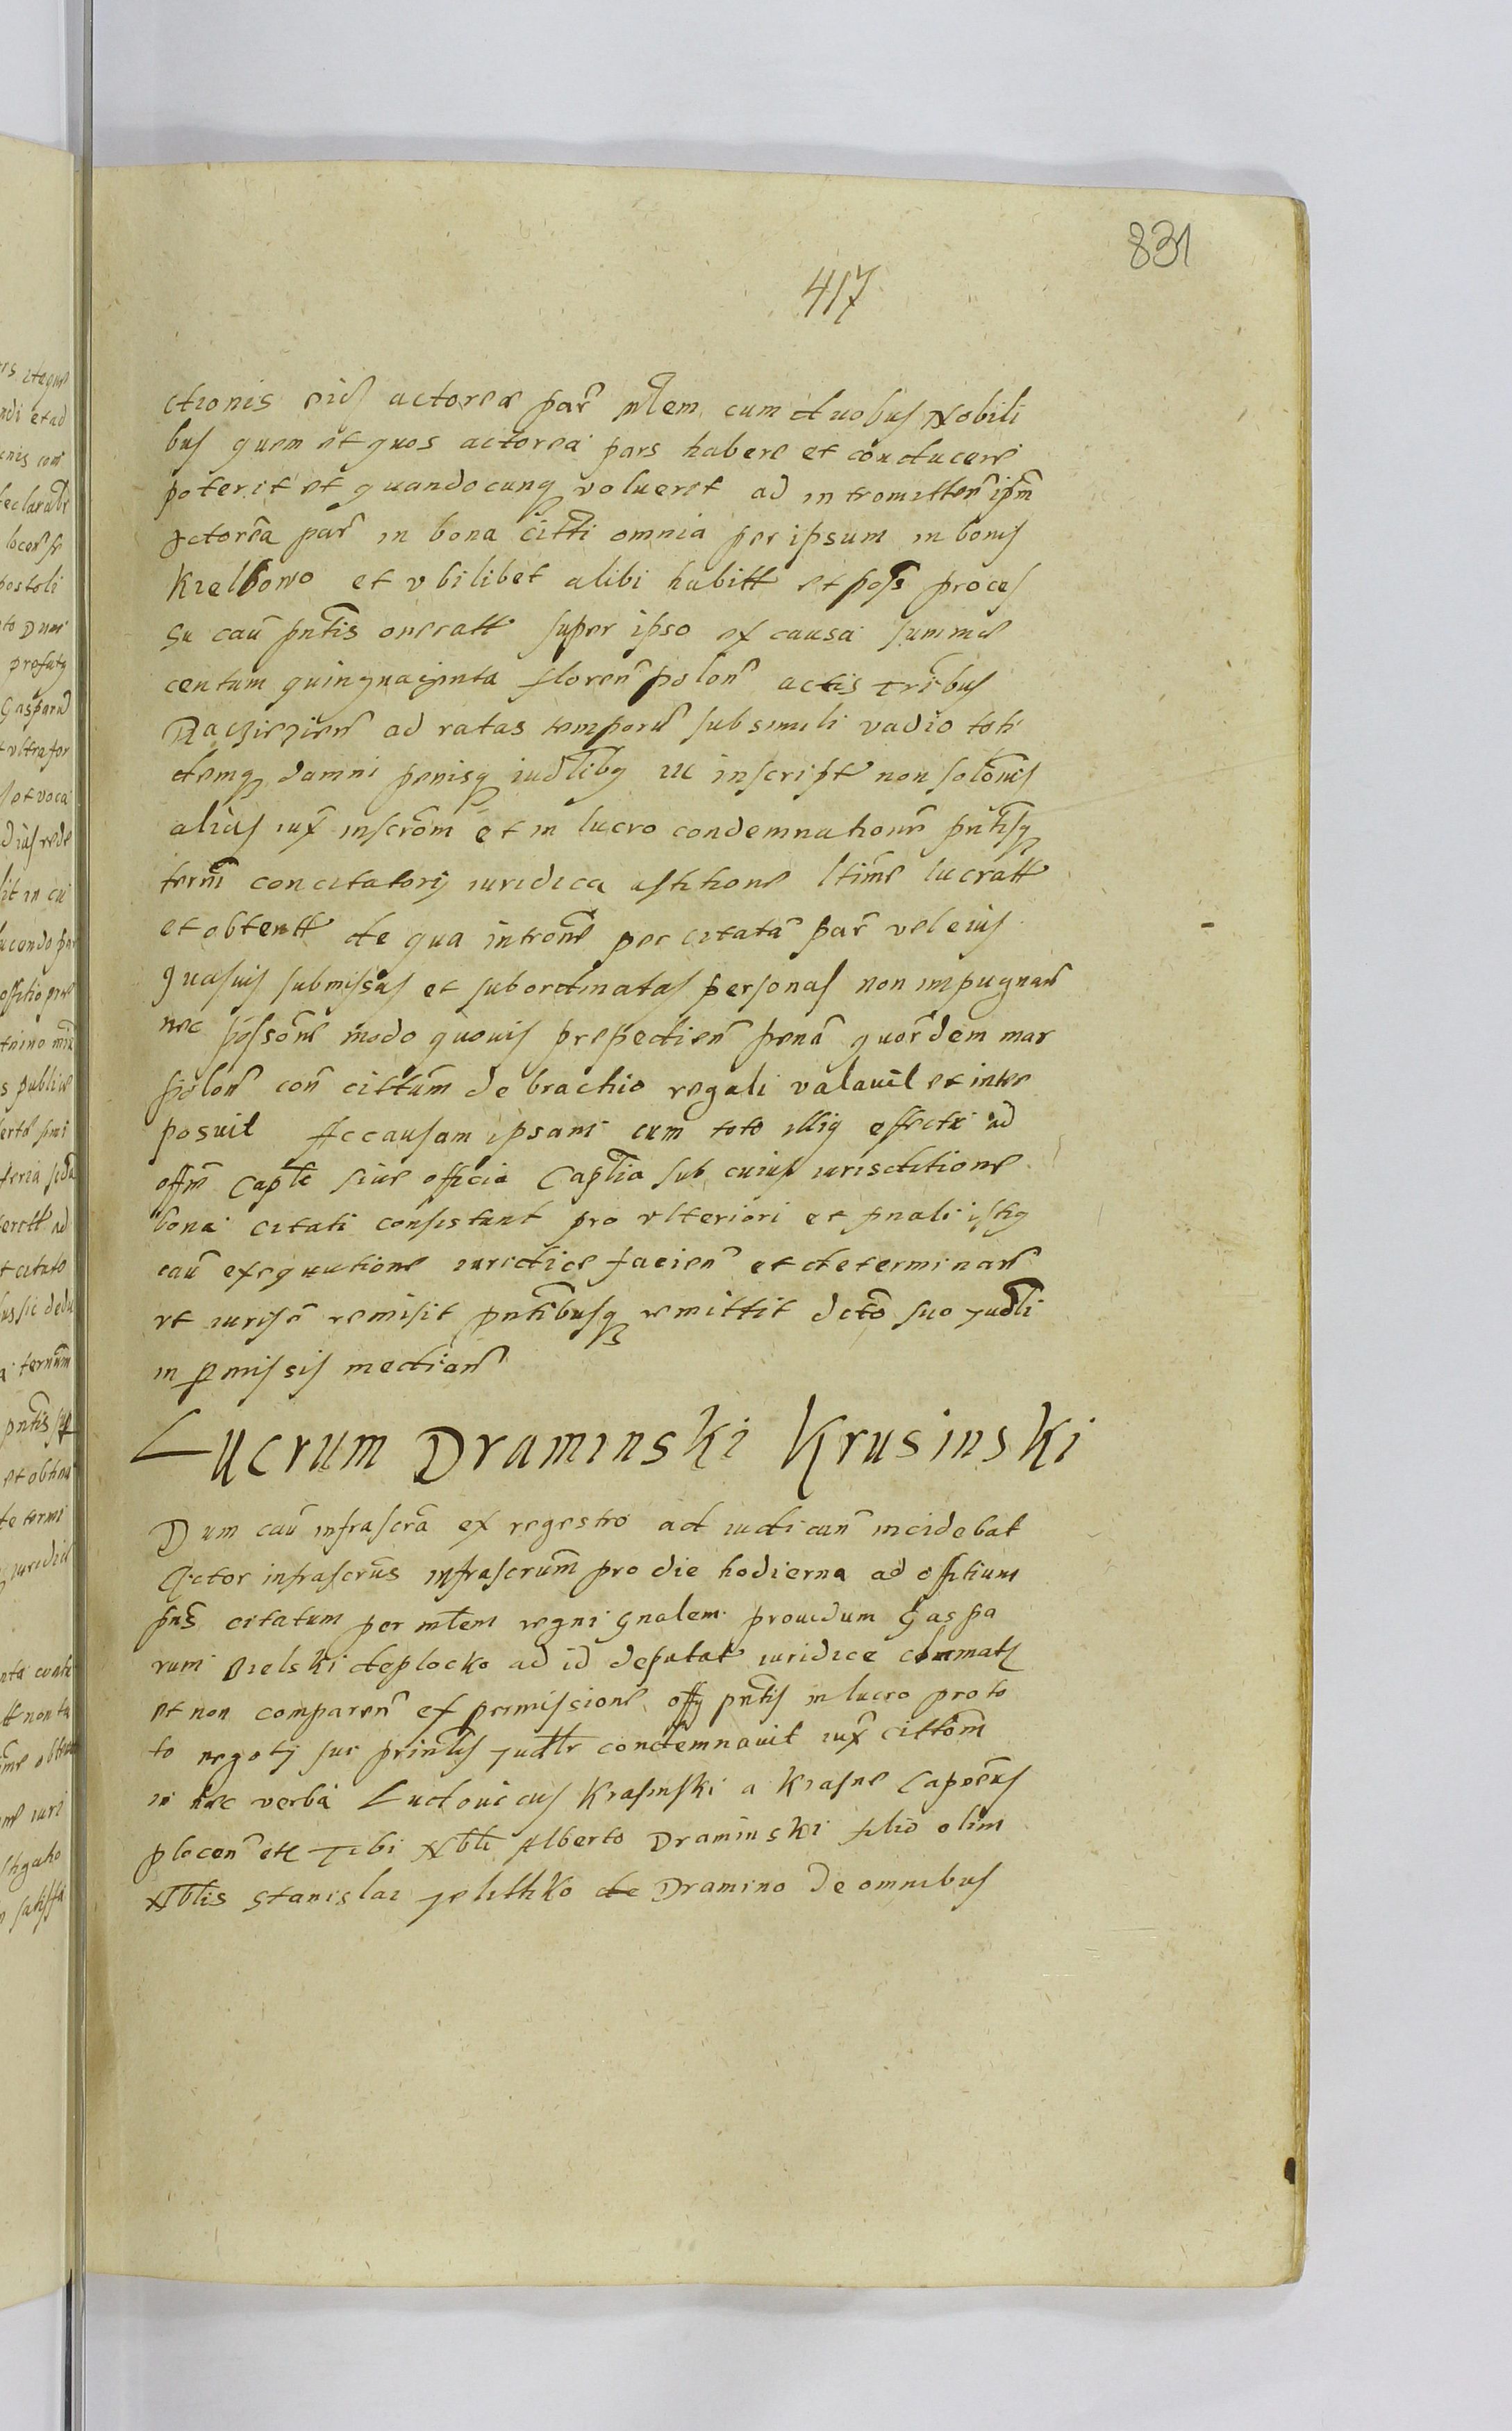 831
417
ctionis eid actoree par mlem cum duobus Nobili
bus quem et quos actorea pars habere et conducere
poterit et quandocunq voluerit ad intromitten ipm
actorea par in bona citti omnia per ipsum in bonis
Kielbowo et ubilibet alibi habitt et poss proces
su cau pntis oneratt super ipso ex causa summe
centum quinquaginta floren polon actis tribus
Raczieziens ad ratas temporu sub simili vadio toti
demq damni penisq iudlibq ut inscript non solonis
alias iux inscrom et in lucro condemnationis pntisq
termi concitatorij iuridica astitione ltime lucratt
et obtentt de qua introne per citata par vel eius
quasvis submissas et subordinatas personas non impugnan
nec possone modo quovis prepedien pena quordem mar
polon con cittum de brachio regali valavit et inter
posuit Ac causam ipsam cum toto illiq effectu ad
offm capte sive officia Captia sub cuius iurisditione
bona citati consistunt pro ulteriori et finali istiq
cau exequutione iuridice facien et determinan
ut iuris e remisit pntibusq remittit dcto suo judli
in pmissis median
Lucrum Draminski Krusinski
Dum cau infrascra ex regestro ad iudican incidebat
Actor infrascrus infrascrum pro die hodierna ad offitium
pns citatum per mlem regni gnalem providum Gaspa
rum Bielski de plocko ad id deputat iuridice clamatq
et non comparen ex permissione offy pntis in lucro pro to
to negotij sui prinlis judlr condemnavit iux cittom
in hec verba Ludovicus Krasinski a Krasne Capneus
plocen etc Tibi Nbli Alberto Draminski filio olim
Nblis Stanislai de Dramino de omnibus